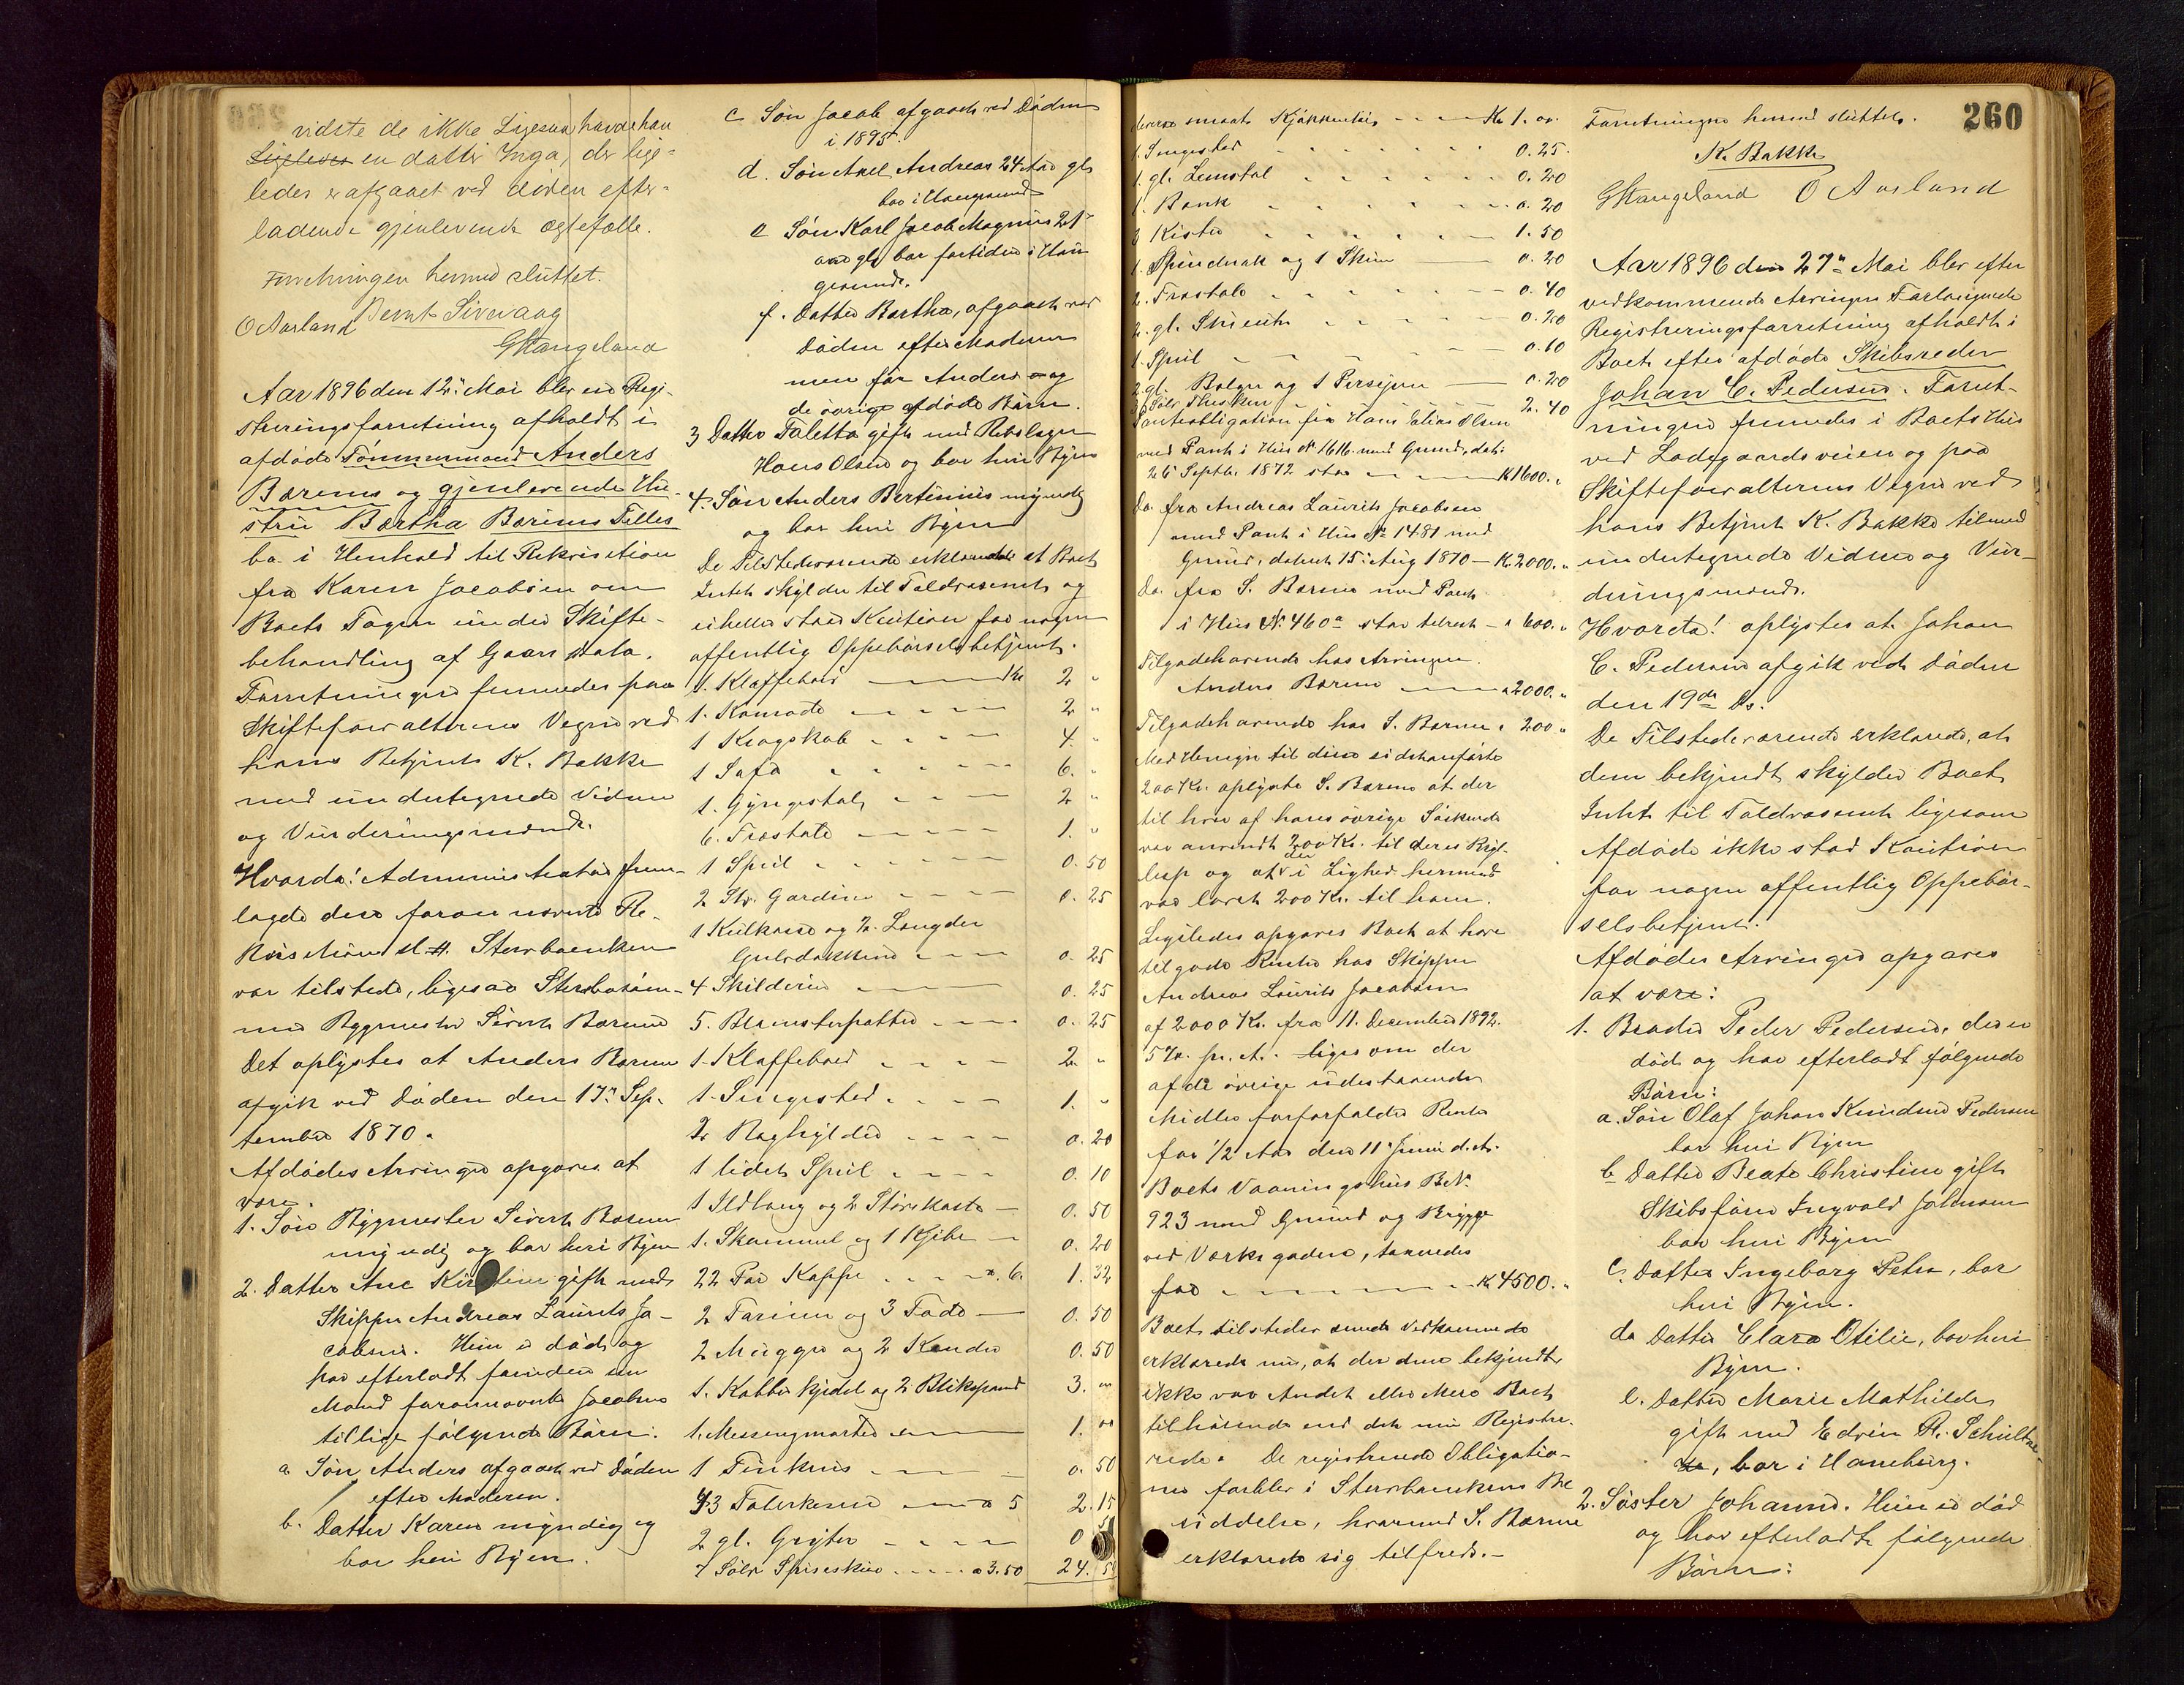 vidste de ikke Ligesaa havde han
Ligeledes en datter Inga, der lige-
ledes er afgaaet ved døden efter-
ladende gjenlevende ægtefælle.
Forretningen hermed sluttet.
Bernt Sirwaag
O Aarland
GStangeland
Aar 1896 den 12te Mai blev en Regi-
streringsforretning afholdt i
afdøde Tømmermand Anders
Børems og gjenlevende Hu-
stru Bertha Børems Fælles
bo i Henhold til Rekvisition
fra Karen Jacobsen om
Boets Tagen under Skifte-
behandling af Gaars Dato.
Forretningen fremmedes paa
Skifteforvalterens Vegne ved
hans Betjent K. Bakke
med undertegnede Vidner
og Vurderingsmænd.
Hvorda! Administrator frem-
lagde den foran nævnte Re-
kvisition Enken
var tilstede, ligesaa
Bygmester Sivert Børem
Det oplystes at Anders Børem
afgik ved Døden den 17de Sep-
tember 1870.
Afdødes Arvinger opgaves at
være:
1. Søn Bygmester Sivert Børem
myndig og bor heri Byen
2. Datter Ane Kirstine gift med
Skipper Andreas Laurits Ja-
cobsen. Hun er død og
har efterladt foruden sin
Mand forannævnte Jacobsen
tillige følgende Børn:
a Søn Anders afgaaet ved Døden
efter Moderen.
b. Datter Karen myndig og
bor heri Byen.
c Søn Jacob afgaaet ved Døden
i 1895.
d. Søn Axel Andreas 24 Aar gl.
bor i Haugesund
e Søn Karl Jacob Magnus 21
aar gl. bor fortiden i Hau
gesund.
f. Datter Bertha, afgaaet ved
Døden efter Moderen
men før Anders og
de øvrige afdøde Børn.
3 Datter Taletta gift med Rebslager
Hans Olsen og bor heri Byen
4. Søn Anders Bertinius myndig
og bor heri Byen
De Tilstedeværende erklærede at Boet
Intet skylder til Toldvæsenet og
ei heller staar Kaution for nogen
offentlig Oppebørselsbetjent.
1. Klaffebord Kr 2 "
1. Komode 2 "
1 Kragskab 4. "
1 Sofa 6. "
1. Gyngestol 2 "
6. Træstole 1. "
1 Speil 0. 50
2 Str. Gardiner 0. 25
1 Kulkasse og 2 Længder
Gulvdækken 0. 25
4 Skilderier 0. 25
5. Blomsterpotter 0. 25
1. Klaffebord 2 "
1. Sengested 1. "
2 Raghylder 0. 20
1 lidet Speil 0. 10
1 Ildtang og 2 Støvekoste 0. 50
1. Skammel og 1 Kjibe 0. 20
22 Par Kopper a. 6. 1. 32
2 Tariner og 3 Fade 0. 50
2 Mugger og 2 Kander 0. 50
1. Kobberkjedel og 2 Blikspand 3. "
1. Messingmorter 1. "
1 Tinkrus 0. 50
43 Talerkener a 5 2. 15
2 gl. Gryder 0
7 Sølv Spiseskeer a 3.50 24. 5
diverse smaat Kjøkkentøi Kr 1. 00.
1. Sengested 0. 25.
1. gl. Lænstol 0. 20
1. Bænk 0. 20
3 Kister 1. 50
1. Spinderok og 1 Skrin 0. 20
2. Træstole 0. 40
2. gl. 0. 20
1. Speil 0. 10
2 gl. Bolger og 1 Persejern 0. 20
3 Sølv Theskeer 2. 40
Panteobligation fra Hans Elias Olsen
med Pant i Hus No 1616 med Grund, dat.
26 Septbr. 1872 stor K 1600. "
Do. fra Andreas Laurits Jacobsen
med Pant i Hus No 1481 med
Grund, dateret 15. Aug 1870 – K. 2000. "
Do. fra S. Børem med Pant
i Hus No. 460a stor tilrest – " 600. "
Tilgodehavende hos Arvingen
Anders Børem " 2000. "
Tilgodehavende hos S. Børem " 200. "
Med Hensyn til disse sidstanførte
200 Kr. oplyste S. Børem at der
til hver af hans øvrige Søskende
var anvendt 200 Kr. til deres Bryl-
lup og at der i Lighed hermed
var laant 200 Kr. til ham.
Ligeledes opgaves Boet at have
tilgode Renter hos Skipper
Andreas Laurits Jacobsen
af 2000 Kr. fra 11. December 1892.
5 % pr. A. ligesom der
af de øvrige udestaaende
Midler forfalder Rente
for 1/2 Aar den 11 Juni d. A.
Boets Vaaningshus B No.
923 med Grund og Brygge
ved Værksgaden, taxeredes
for K 4500. "
Boets tilstedeværende Vedkommende
erklærede nu, at der dem bekjendt
ikke var Andet eller Mere Boet
tilhørende end det nu Registre-
rede. De registrerede Obligatio-
ner forblev i Enkens Be
siddelse, hvormed S. Børem
erklærede sig tilfreds.–
260
Forretningen hermed sluttet.
K. Bakke
GStangeland O Aarland
Aar 1896 den 27de Mai blev efter
vedkommende Arvingers Forlangende
Registreringsforretning afholdt i
Boet efter afdøde Skibsreder
Johan C. Pedersen. Forret-
ningen fremmedes i Boets Hus
ved Ladegaardsveien og paa
Skifteforvalterens Vegne ved
hans Betjent K. Bakke tilmed
undertegnede Vidner og Vur-
deringsmænd.
Hvorda! oplystes at Johan
C. Pedersen afgik ved Døden
den 19de ds.
De Tilstedeværende erklærede, at
dem bekjendt skylder Boet
Intet til Toldvæsenet ligesom
Afdøde ikke stod Kaution
for nogen offentlig Oppebør-
selsbetjent.
Afdødes Arvinger opgaves
at være:
1. Broder Peder Pedersen, der er
død og har efterladt følgende
Børn:
a. Søn Olaf Johan Knudsen Pedersen
bor heri Byen
b Datter Beate Christine gift
Skibsfører Ingvald Johnsen
bor heri Byen
c. Datter Ingeborg Petra, bor
heri Byen.
d. Datter Clara Otilie, bor heri
Byen.
e. Datter Marie Mathilde
gift med Edvin R. Schultze
, bor i Hamburg.
2. Søster Johanne. Hun er død
og har efterladt følgende
Børn: